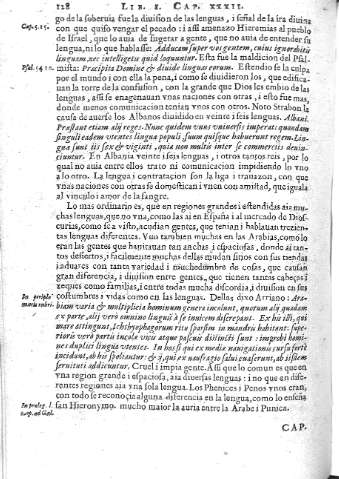 128 LIB. 2. CAP. XXXII.
go de la soberuia fue la diuision de las lenguas, i señal de la ira diuina
Cap. 5.15. con que quiso vangar el pecado: i assi amenazo Hieremias al pueblo
de Israel, que lo auia de sugetar a gente, que no auia de entender su
lengua, ni lo que hablasse: Adducam super vos gentem, cuius ignorabitis
linguam, nec intelligetis quid loquatur. Esta fue la maldicion del Psal-
Psal. 54.10. mista: Præcipita Domine & diuide linguas eorum. Estendio se la culpa
por el mundo i con ella la pena, i como se diuidieron los, que edifica-
uan la torre de la confusion, con la grande que Dios les embio de las
lenguas, assi se enagenauan vnas naciones con otras, i esto fue mas,
donde menos comunicacion tenian vnos con otros. Noto Strabon la
causa de auerse los Albanos diuidido en veinte i seis lenguas. Albani.
Præstant etiam alij reges. Nunc quidem vnus vniuersis imperat: quondam
singuli eadem vtentes lingua populi suum quisque habuerunt regem. Lin-
guæ sunt iis sex & viginti, quia non multa inter se commercia deuin-
ciuntur. En Albania veinte i seis lenguas, i otros tantos reis, por lo
qual no auia entre ellos trato ni comunicacion impidiendo lo vno
a lo otro. La lengua i contratacion son la liga i trauazon, con que
vnas naciones con otras se domestican i vnen con amistad, que iguala
al vinculo i amor de la sangre.
Lo mas ordinario es, que en regiones grandes i estendidas aia mu-
chas lenguas, que no vna, como las ai en España i al mercado de Dios-
curias, como se a visto, acudian gentes, que tenian i hablauan trezien-
tas lenguas diferentes. Vuo tambien muchas en las Arabias, como lo
eran las gentes que habitauan tan anchas i espaciosas, donde ai tan-
tos desiertos, i facilmente muchas dellas mudan sitios con sus tiendas
i aduares con tanta variedad i muchedumbre de cosas, que causan
gran diferencia, i diuision entre gentes, que tienen tantas cabeças i
xeques como familias, i entre todas mucha discordia, i diuision en sus
In periplo maris rubri. costumbres i vidas como en las lenguas. Dellas dixo Arriano: Ara-
biam varia & multiplicia hominum genera incolunt, quorum alij quidam
ex parte, alij vero omnino linguis à se inuicem discrepant. Ex his isti, qui
mare attingunt, Ichthyophagorum ritu sparsim in mandris habitant: supe-
riora vero partim incolæ vicis atque pascuis distincti sunt: improbi homi-
nes duplici lingua vtentes. In hos si qui ex media nauigationis cursu forte
incidant, ab his spoliantur: & si, qui ex naufragio salui euaserunt, ab iisdem
seruituti addicuntur. Cruel i impia gente. Assi que lo comun es que en
vna region grande i espaciosa, aia diuersas lenguas: i no que en dife-
rentes regiones aia vna sola lengua. Los Phenices i Penos vnos eran,
con todo se reconocia alguna diferencia en la lengua, como lo enseña
In prolog. l. 2. ep. ad Gal. san Hieronymo, mucho maior la auria entre la Arabe i Punica.
CAP.